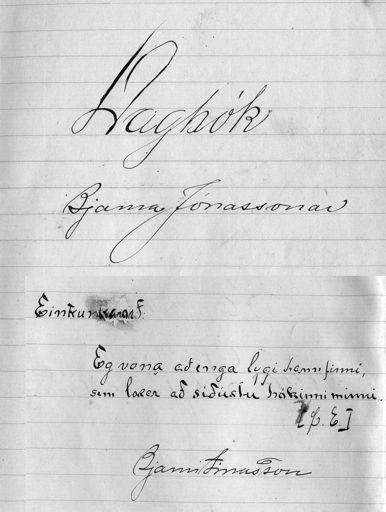 Dagbók
Bjarna Jónassonar
Einkunnarorð.
Eg vona að enga lygi hann finni,
sem les að síðustu bókinni minni.
Bjarni Jónasson